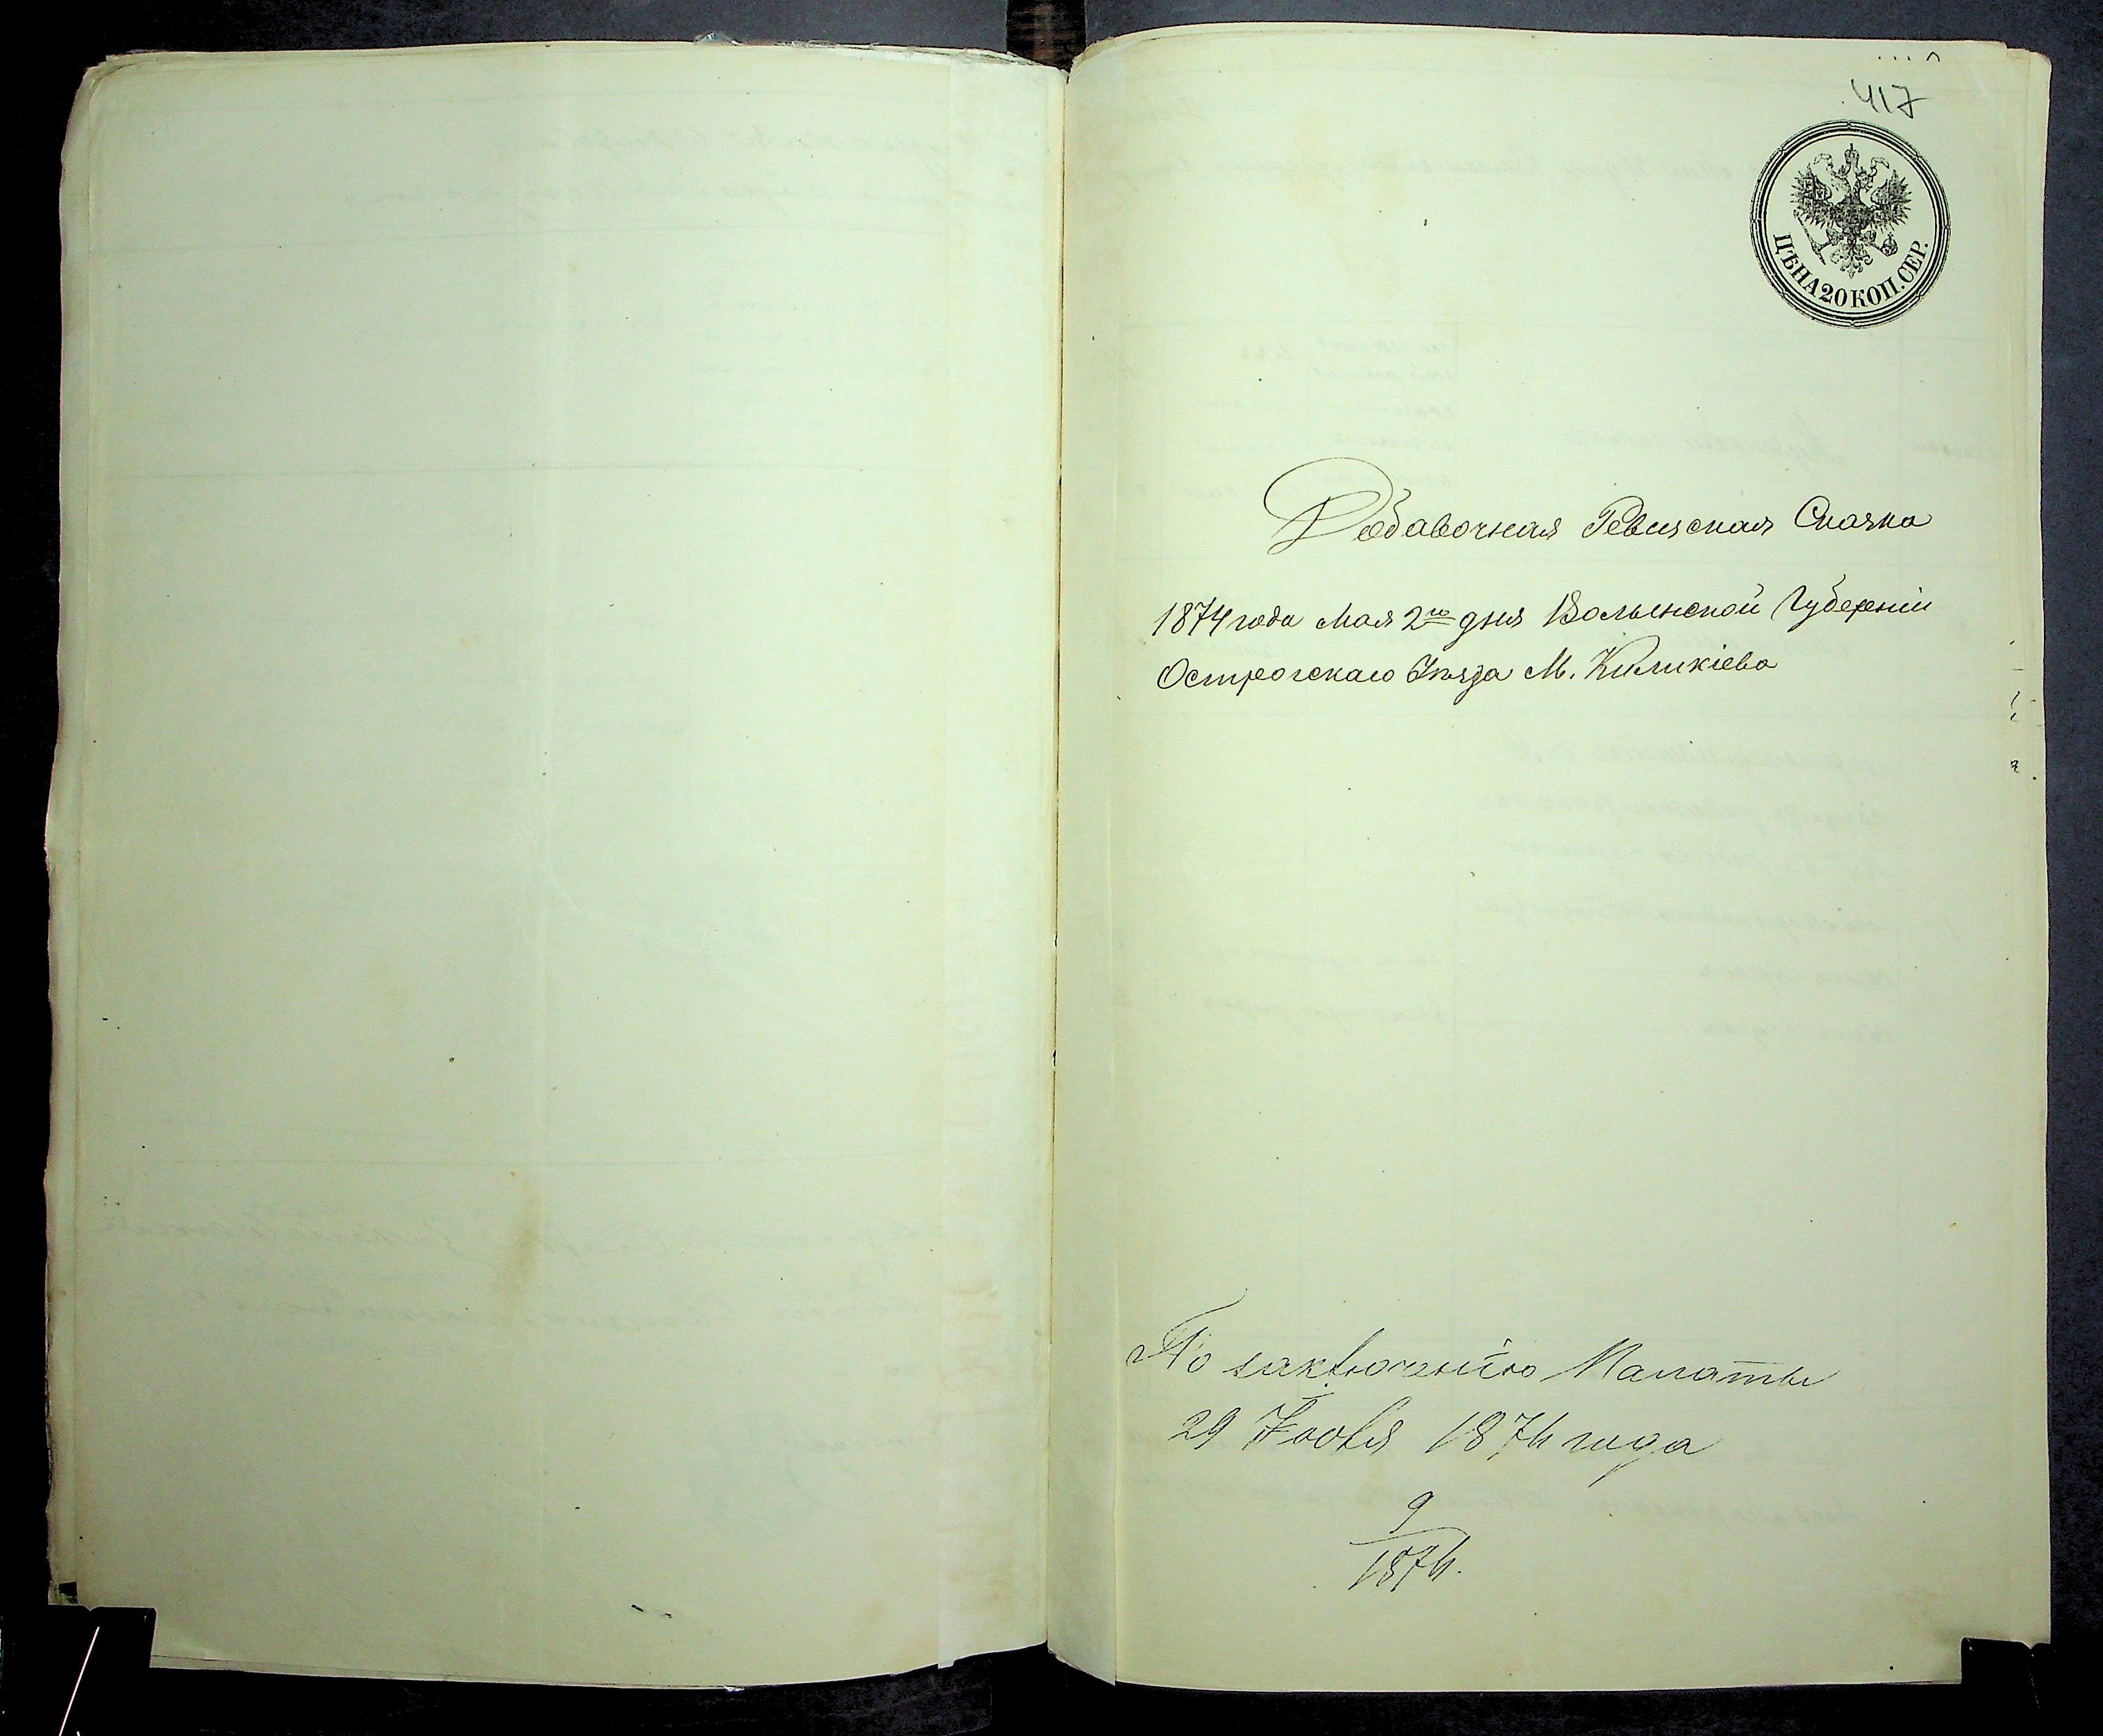 417
ЦѢНА 20 КОП. СЕР.
Добавочная Ревизская Сказка
1874 года Мая 2го дня Волынской Губерніи
Острогскаго Уѣзда М. Киликіева
По заключенію Палаты
29 Іюля 1874 года
9
1874.